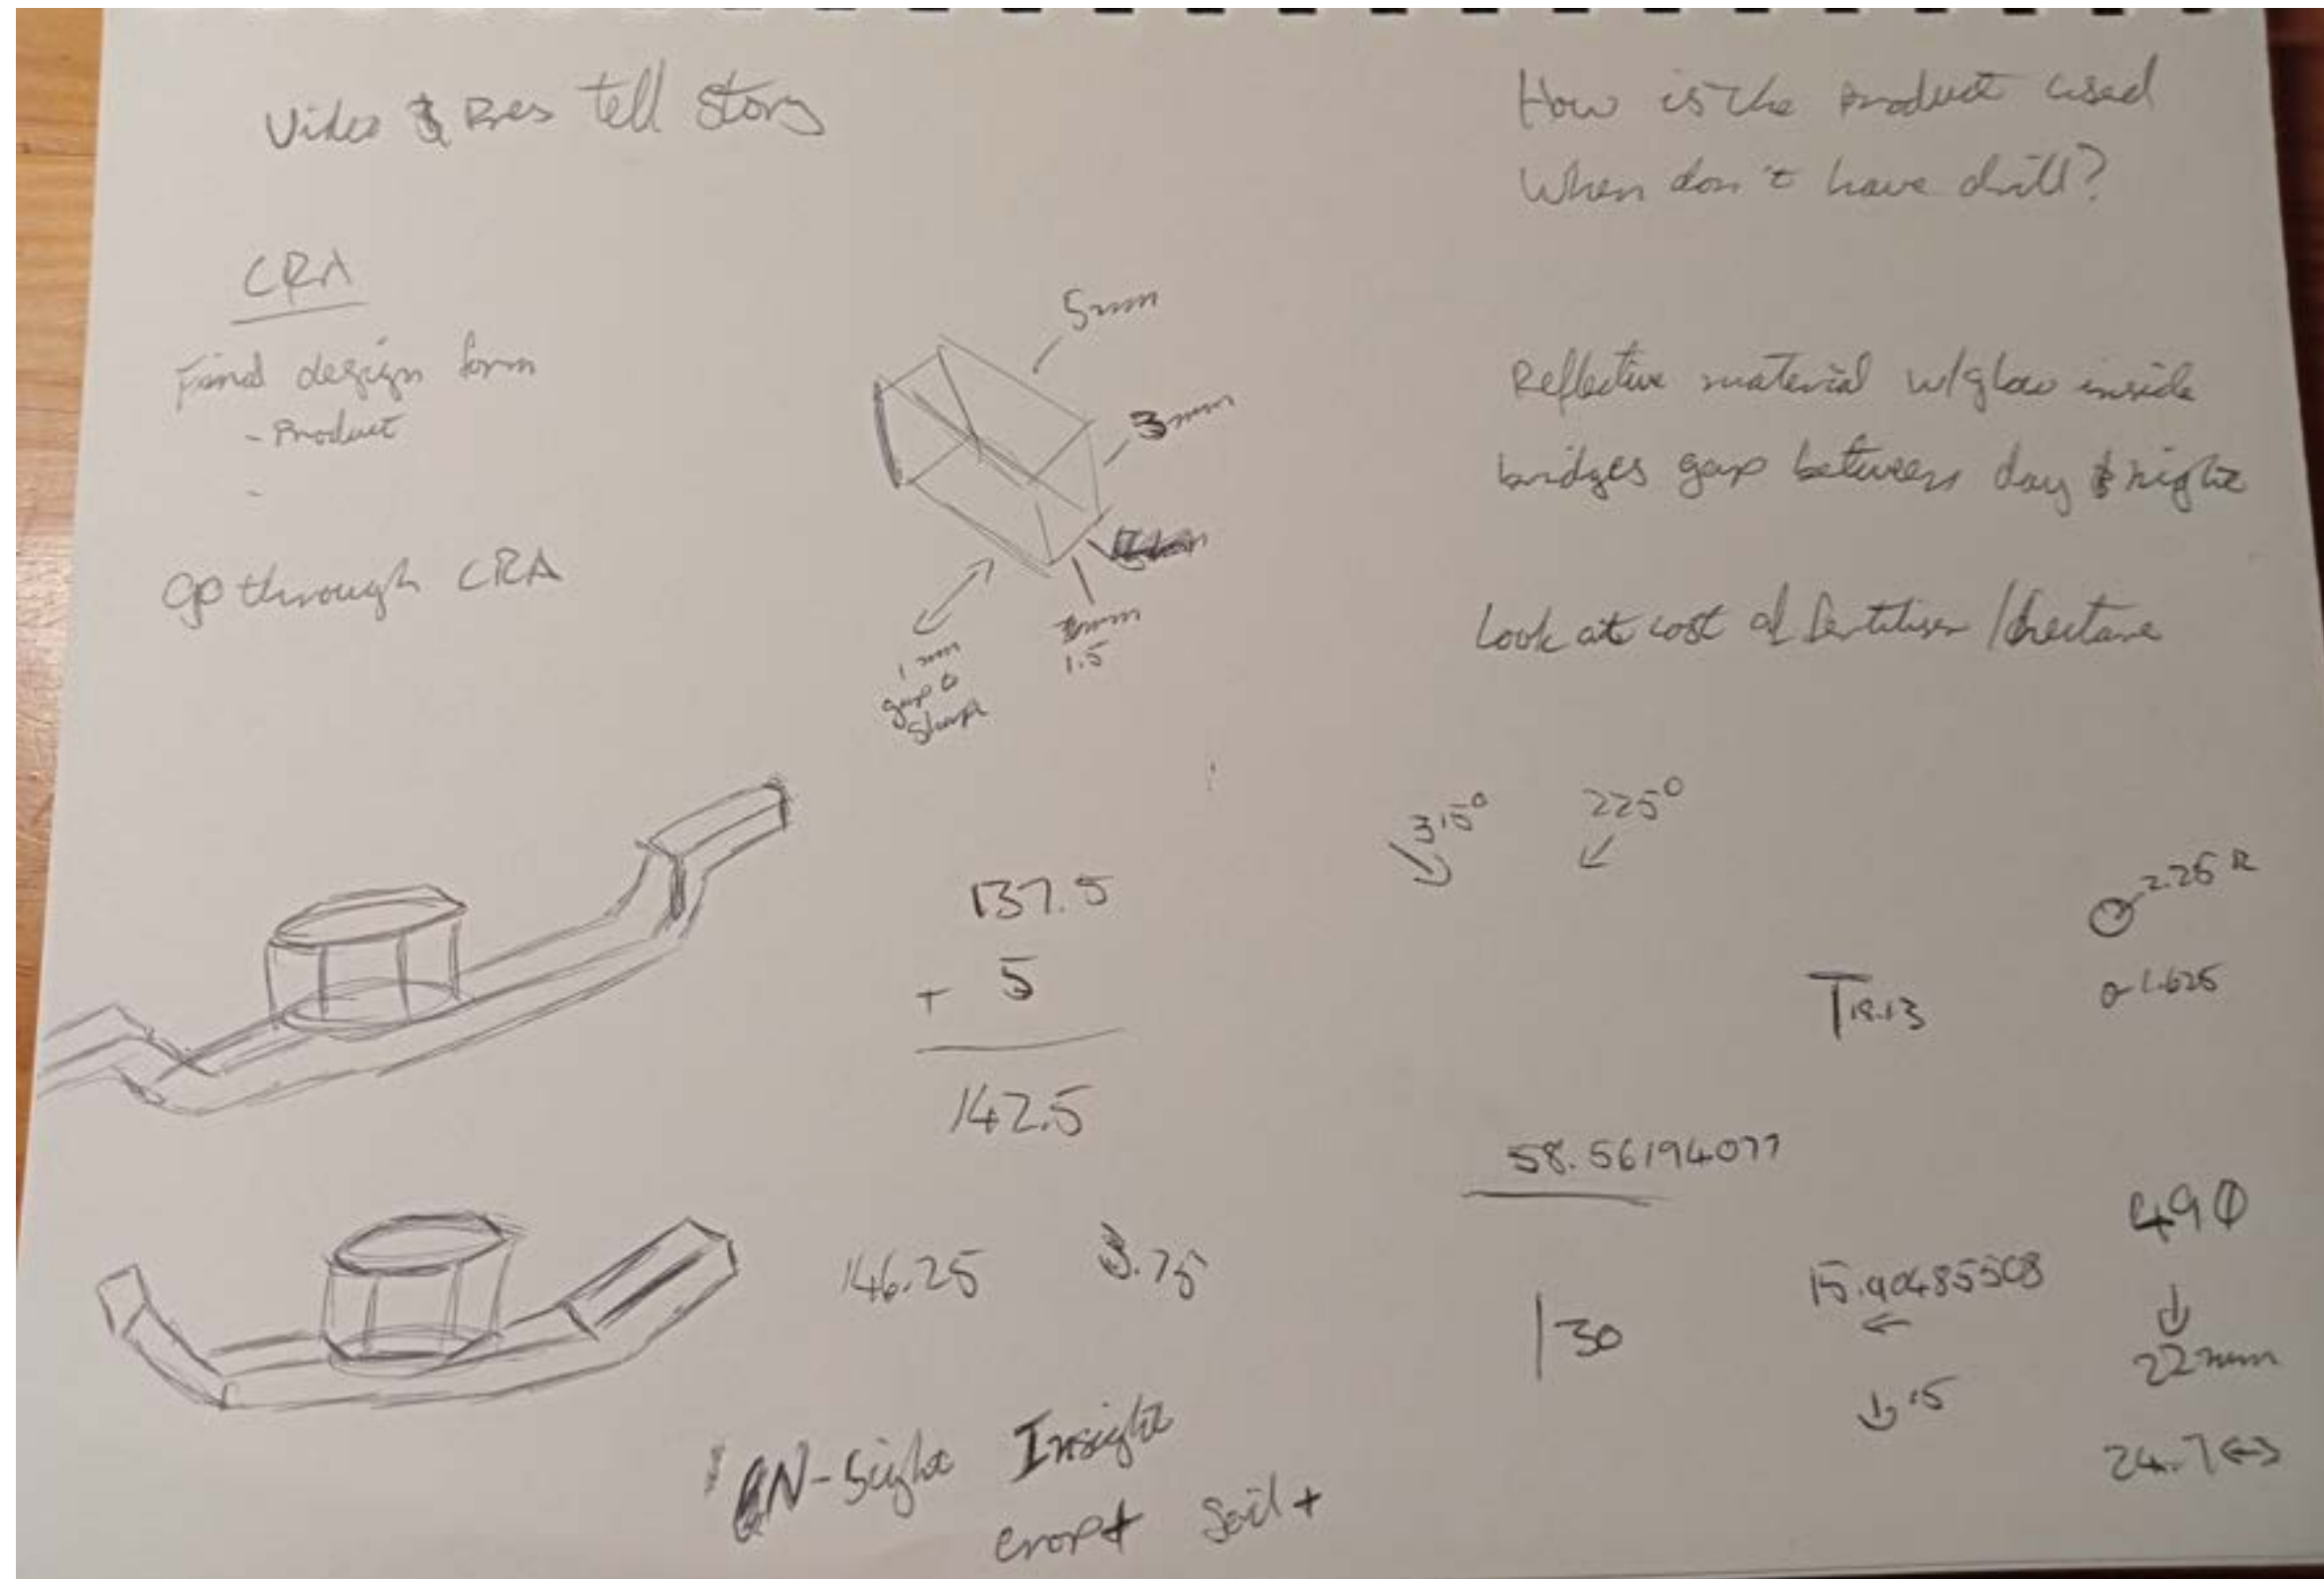 Video & Pres tell story
CRA
Final design form
- Product
-
Go through CRA
5mm
3mm
1.5
1 mm
gap to
shape
137.5
+ 5
142.5
146.25 3.75
N-Sight Insight
crop+ Soil+
How is the product used
When don't have drill?
Reflective material w/glow inside
bridges gap between day & night
Look at cost of fertiliser /hectare
315° 225°
2.25 R
1.625
58.56194077
130
15.90485508
.15
22mm
24.7